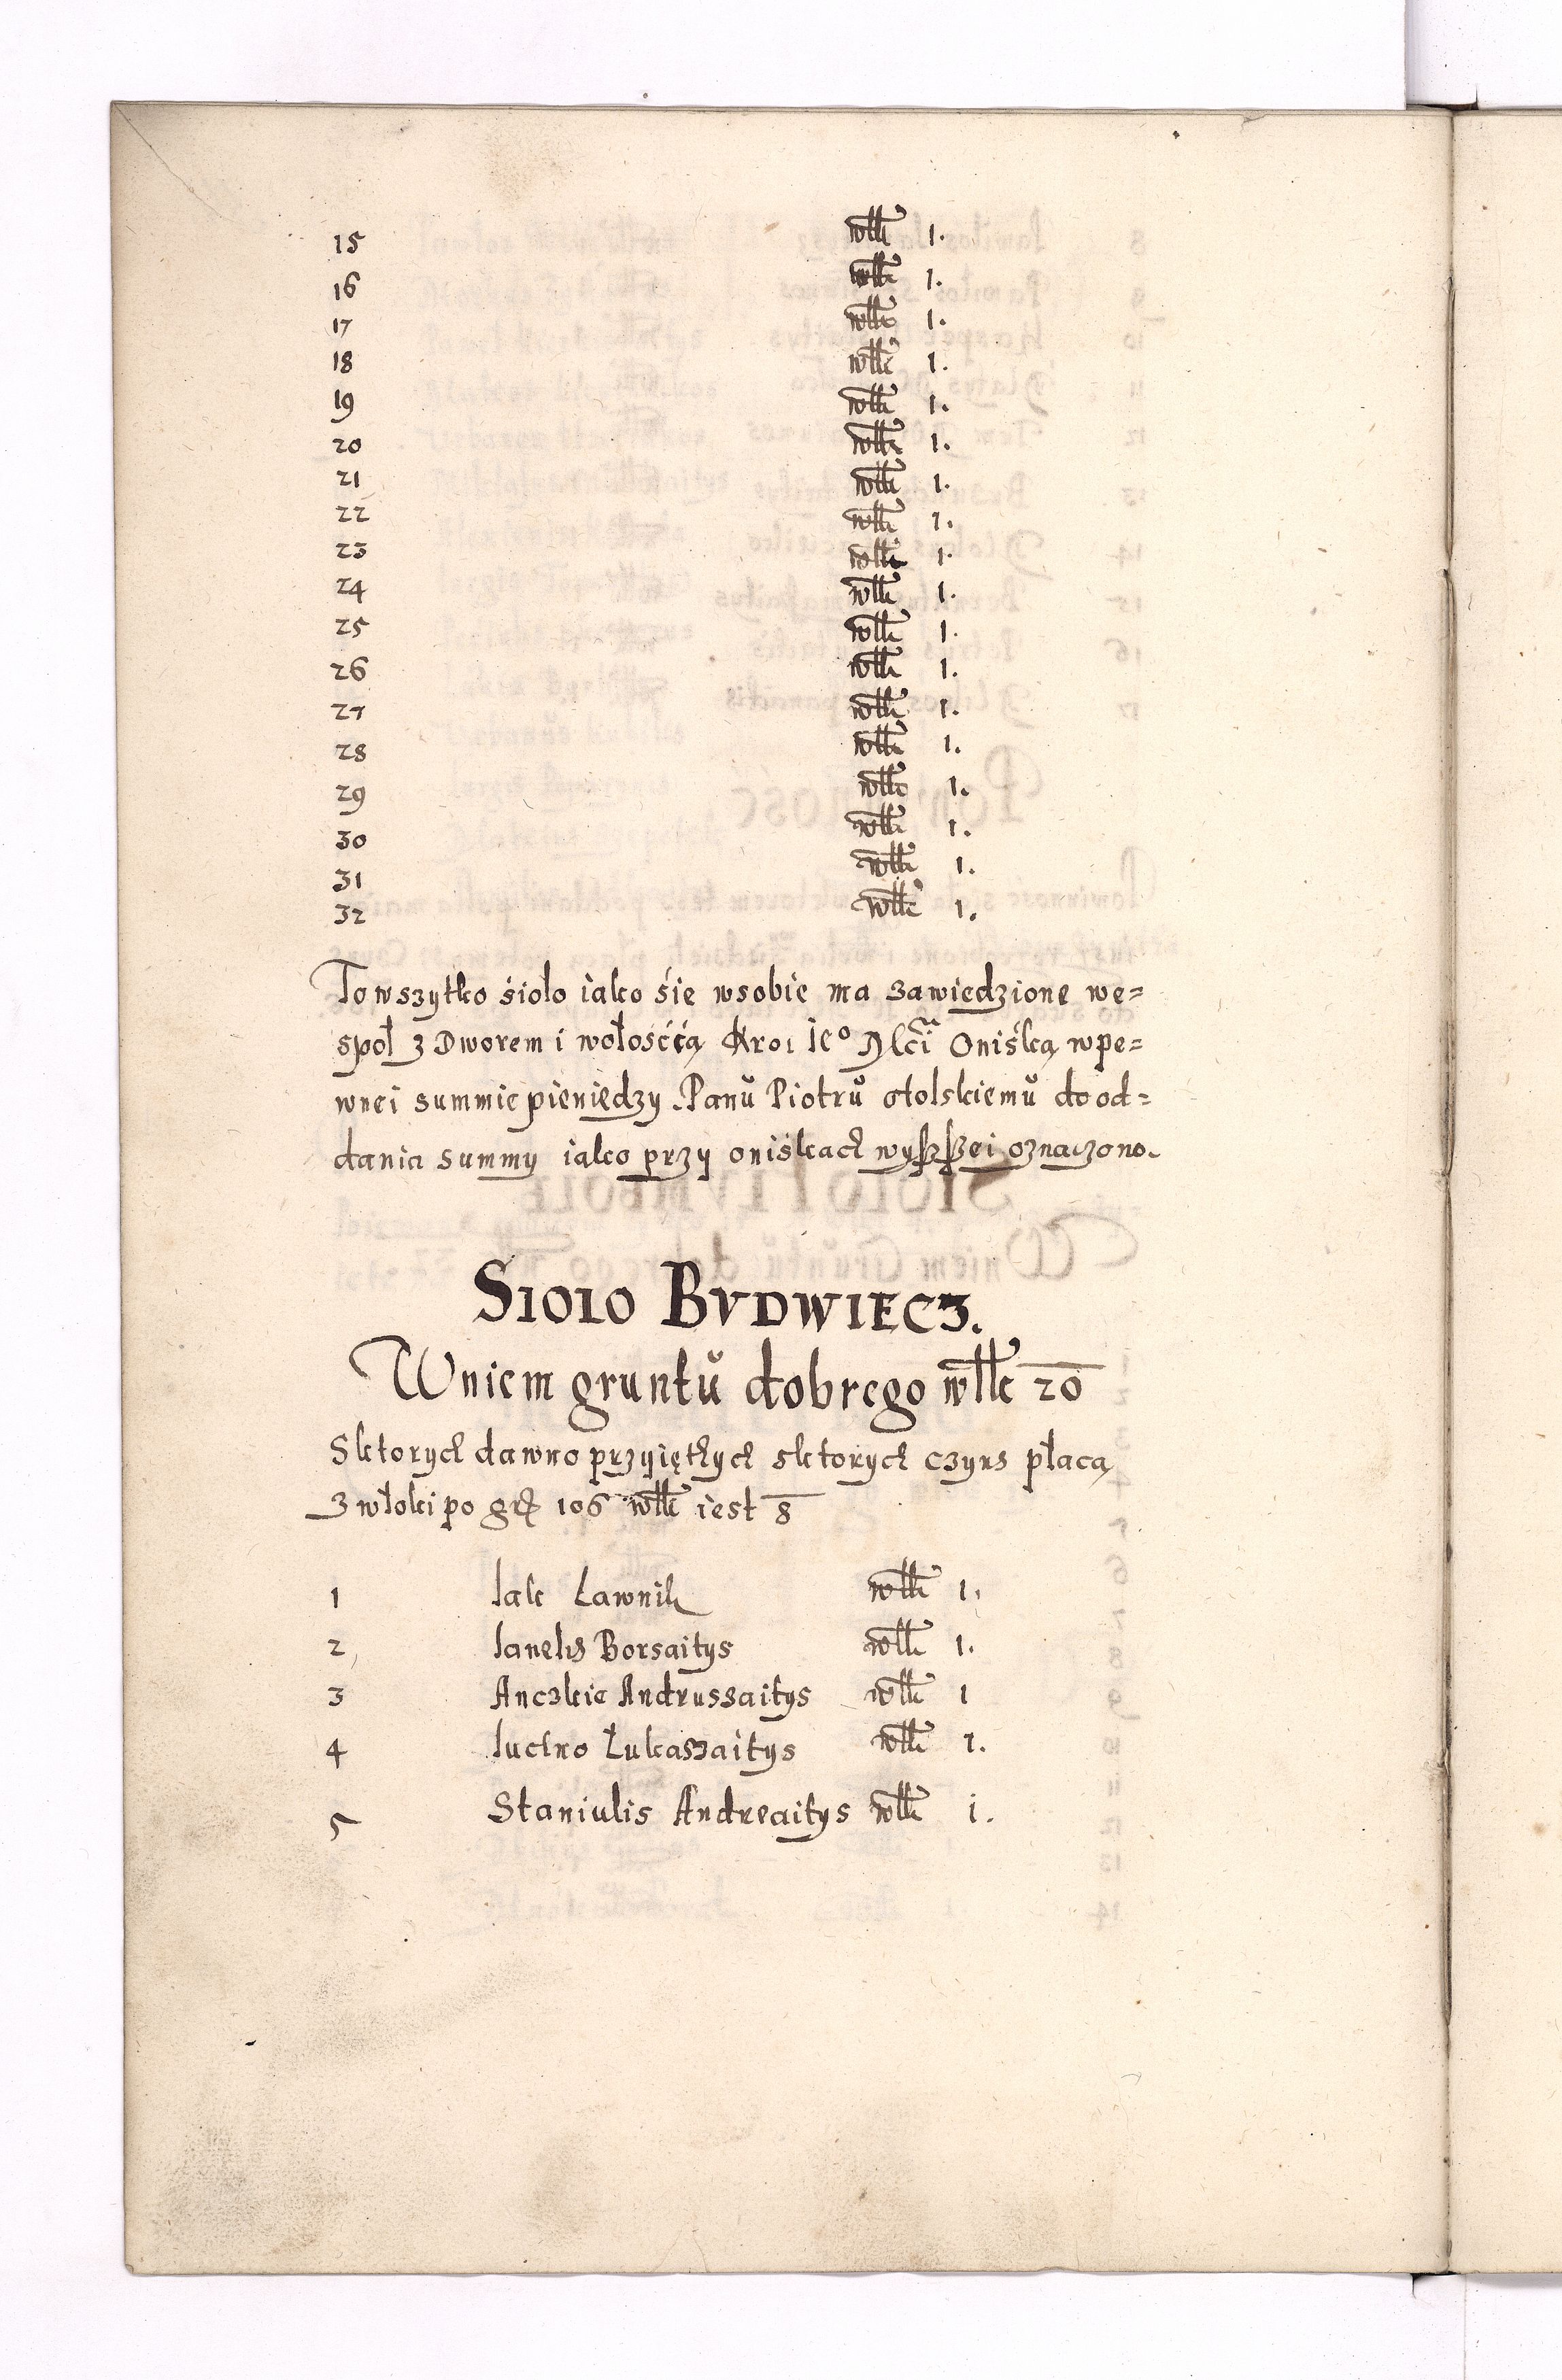 15 włk 1.
16 włk 1.
17 włk 1.
18 włk 1.
19 włk 1.
20 włk 1.
21 włk 1.
22 włk 1.
23 włk 1.
24 włk 1.
25 włk 1.
26 włk 1.
27 włk 1.
28 włk 1.
29 włk 1.
30 włk 1.
31 włk 1.
32 włk 1.
To wszytko śioło iako śię wsobie ma zawiedzione we=
społ z Dworem i wołośćcą Kroı ie° Mści Oniśką wpe=
wnei summie pieniędzy Panŭ Piotrŭ stolskiemŭ do od=
dania summy iako przy oniśkach wyszszei oznaczono.
SIOIO BVDWIECZ.
Wniem gruntŭ dobrego włk 20
Sktorych dawno przyiętych sktorych czyns płacą
z włoki po gr 106 włk iest 8
1 Iak Ławnik włk 1.
2 Ianelis Borsaitys włk 1.
3 Anczkie Andruszaitys włk 1
4 Iuchno Łukaszaitys włk 1.
5 Staniulis Andreaitys włk i.